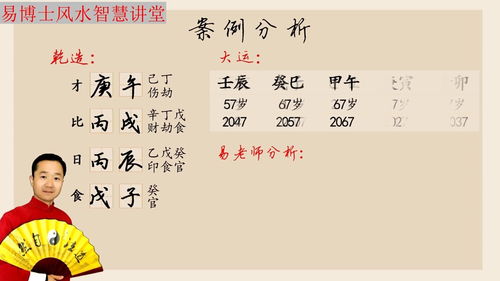 易博士风水智慧讲堂
案例分析
乾造：
才 庚 午 己丁
伤劫
比 丙 戌 辛丁戊
财劫食
日 丙 辰 乙戊癸
印食官
食 戊 子 癸
官
大运：
壬辰 癸巳 甲午 寅 卯
57岁 67岁 67岁 7岁 岁
2047 2057 2067 027 037
易老师分析：